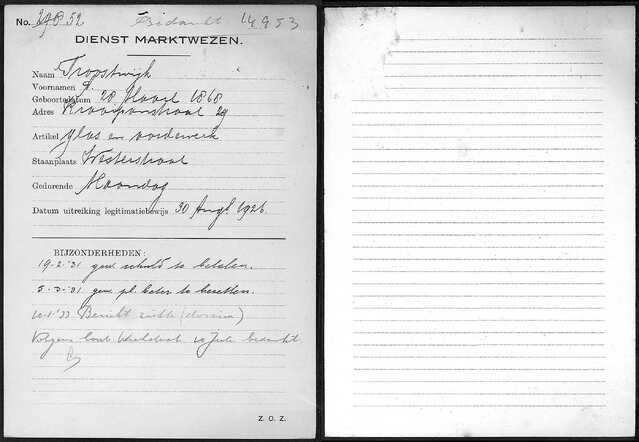 No. 2952 Bedankt 14953
DIENST MARKTWEZEN.
Naam Troostwijk
Voornamen
Geboortedatum 28 Maart 1868
Adres 29
Artikel glas en aardewerk
Staanplaats Westerstraat
Gedurende Maandag
Datum uitreiking legitimatiebewijs 30 Aug. 1926
BIJZONDERHEDEN:
19-2-'31 gew. schuld te betalen.
5-3-'31 gew. pl. beter te bezetten.
10-1-'33 Bericht ziekte
Volgens bedankt.
Z. O. Z.